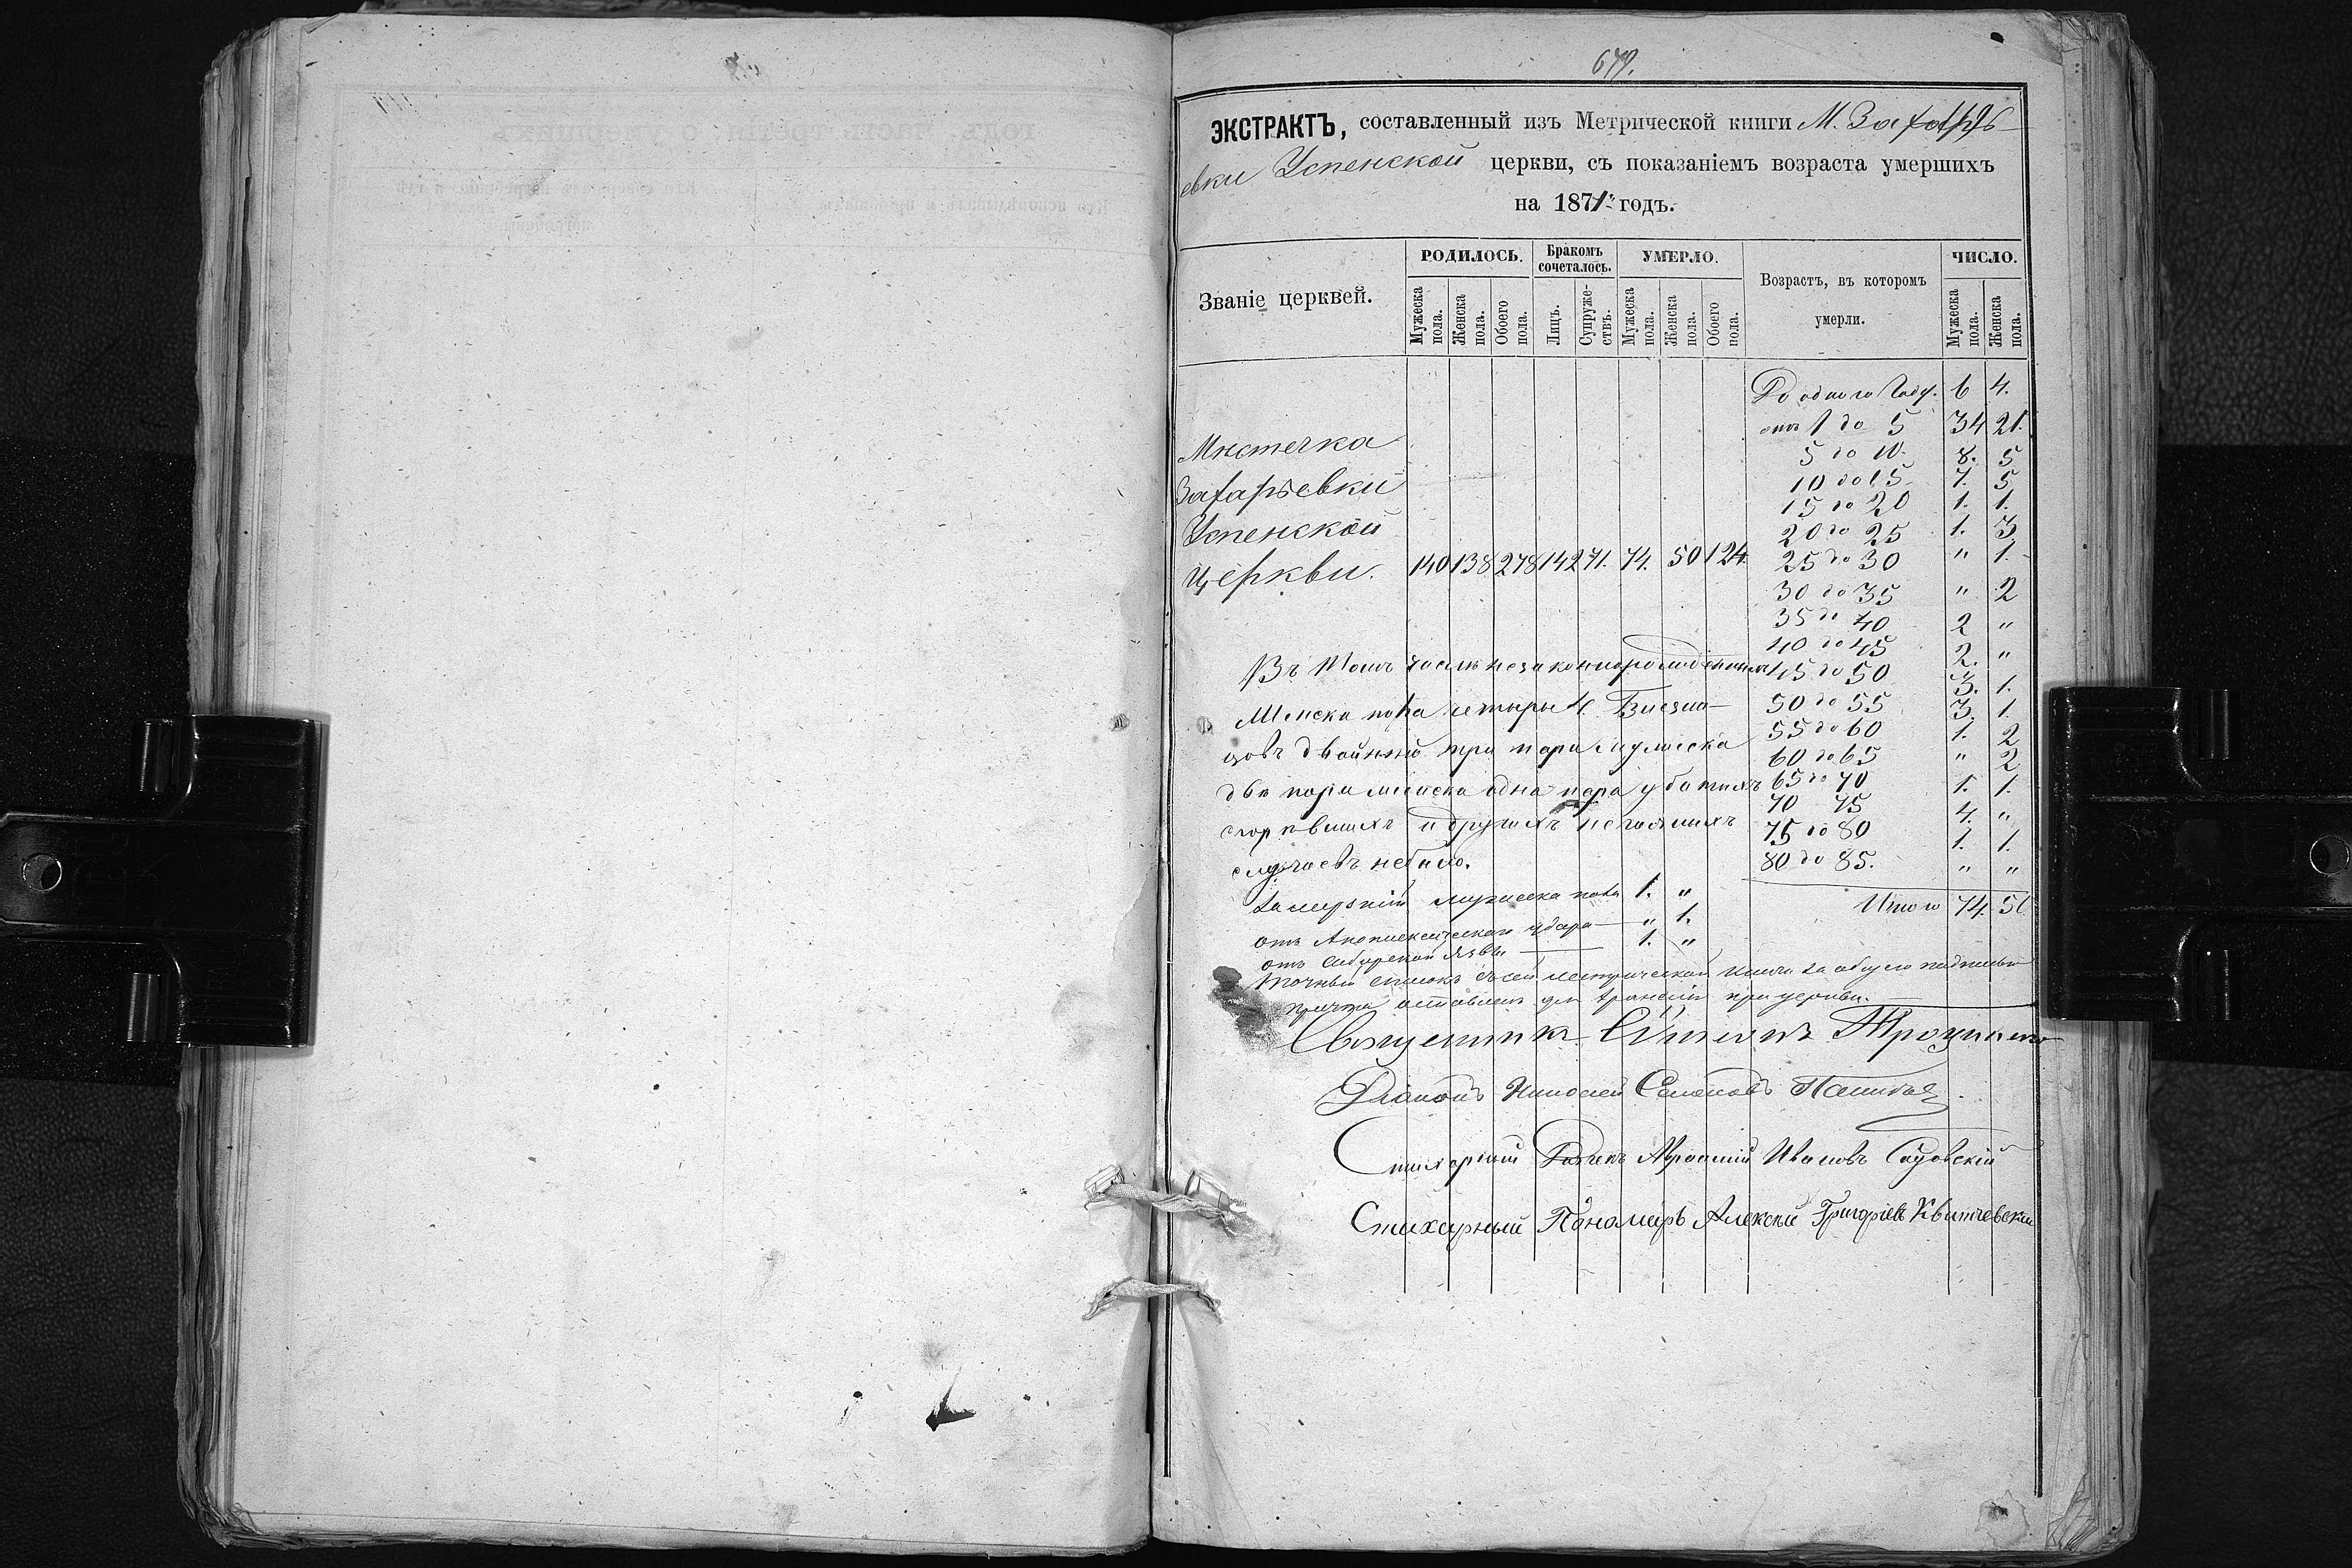 679.
ЭКСТРАКТЪ, составленный изъ Метрической книги М. Захарь-
евки Успенской церкви, съ показаніемъ возраста умершихъ
на 1871 годъ.
Званіе церквей.
РОДИЛОСЬ.
Мужеска пола.
Женска пола.
Обоего пола.
Бракомъ сочеталось.
Лицъ.
Супруже-ствъ.
УМЕРЛО.
Мужеска пола.
Женска пола.
Обоего пола.
Возрастъ, въ которомъ
умерли.
ЧИСЛО.
Мужеска пола.
Женска пола.
Мѣстечка
Захарьевки
Успенской
Церкви. 140 138 278 142 71. 74. 50 124.
До одного году. 6 4.
отъ 1 до 5 34 21.
5 до 10. 8. 5
10 до 15 7. 5
15 до 20 1. 1.
20 до 25 1. 3
25 до 30 " 1.
30 до 35 " 2
35 до 40 2 "
40 до 45 2. "
45 до 50 3. 1.
50 до 55 3. 1.
55 до 60 1. 2
60 до 65 " 2
65 до 70 1. 1.
70 75 4. "
75 до 80 1. 1.
80 до 85. " "
Итого 74. 50
Въ томъ числѣ незаконнорожденныхъ
Женска пола четыре 4. Близне-
цовъ двойнею три пары мужеска
двѣ пары женска одна пара убитыхъ
сгорѣвшихъ и другихъ
случаевъ небыло.
мужеска пола 1. "
отъ Апоплексическаго удара — " 1.
отъ Сибирской язвы — 1. "
Точный списокъ съ сей метрической книги за общею подписью
причта оставленъ для храненія при церкви.
Священникъ Троцкій
Діаконъ Николай
Стихарный Ивановъ Садовскій
Стихарный Пономарь Алексѣй Григорьевъ